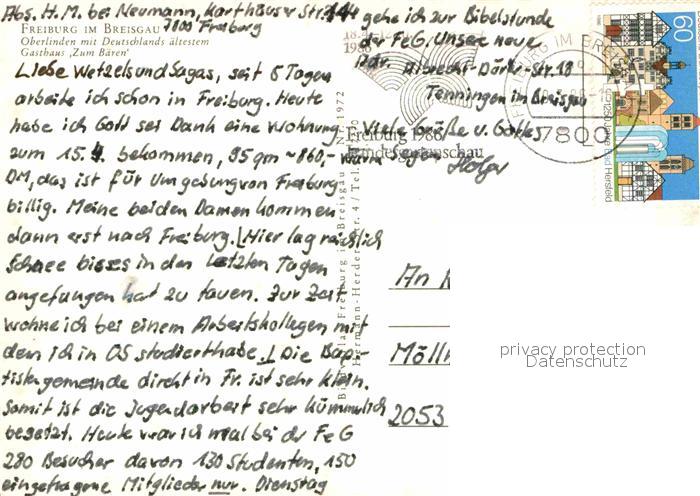 Abs. H. M. bei Neumann, Karthäuser Str. 144
7800 Freiburg
FREIBURG IM BREISGAU
Oberlinden mit Deutschlands ältestem
Gasthaus „Zum Bären"
Liebe Wetzels und Sagas, seit 5 Tagen
arbeite ich schon in Freiburg. Heute
habe ich Gott sei Dank eine Wohnung
zum 15.4. bekommen, 95 qm ~ 860,- warm
DM, das ist für Umgebung von Freiburg
billig. Meine beiden Damen kommen
dann erst nach Freiburg. Hier lag reichlich
Schnee bis es in den letzten Tagen
angefangen hat zu tauen. Zur Zeit
wohne ich bei einem Arbeitskollegen mit
dem ich in OS studiert habe. Die Bap-
tistengemeinde direkt in Fr. ist sehr klein.
Somit ist die Jugendarbeit sehr kümmerlich
besetzt. Heute war ich mal bei der FeG
280 Besucher davon 130 Studenten, 150
eingetragene Mitglieder nur. Dienstag
gehe ich zur Bibelstunde
der FeG. Unsere neue
Adr. Albrecht-Dürer-Str. 18
Tenningen im Breisgau
Viele Grüße u. Gottes
Segen Holger
Freiburg 1986
Landesgartenschau
1986
FREIBURG IM BREISGAU
7800
60
1250 Jahre Bad Hersfeld
Bild Verlag Freiburg im Breisgau
Hermann-Herder-Str. 4 / Tel.
An
Mölln
2053
privacy protection
Datenschutz